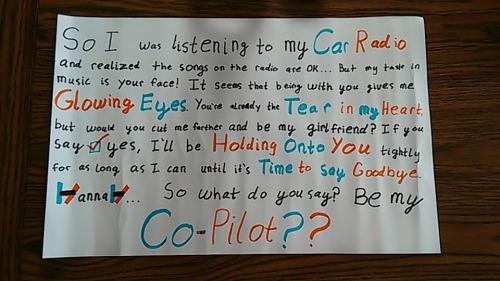 So I was listening to my Car Radio
and realized the songs on the radio are OK... But my taste in
music is your face! It seems that being with you gives me
Glowing Eyes. You're already the Tear in my Heart,
but would you cut me farther and be my girlfriend? If you
say ☑ yes, I'll be Holding Onto You tightly
for as long as I can until it's Time to Say Goodbye.
HannaH... So what do you say? Be my
Co-Pilot??